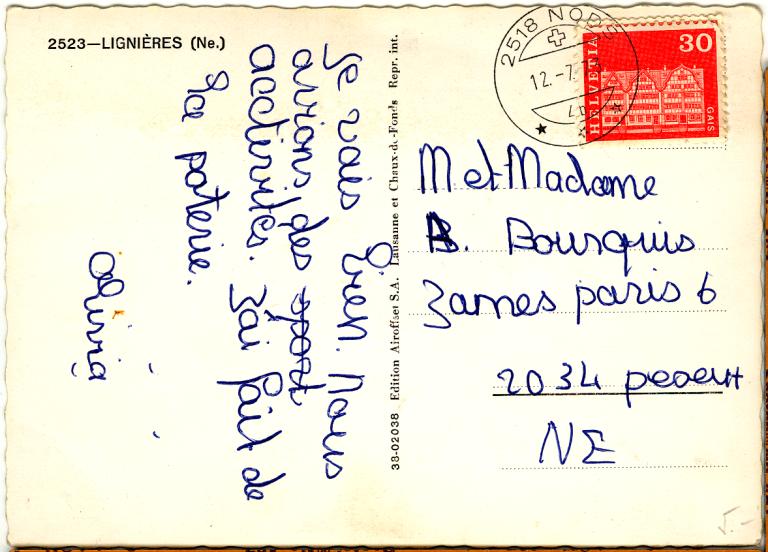 2523—LIGNIÈRES (Ne.)
Je vais bien. Nous
avions des sport
acctivités. J'ai fait de
la poterie.
Olivia
33-02038 Edition Airoffset S.A. Lausanne et Chaux-de-Fonds Repr. int.
2518 NODS
12.-7.7
HELVETIA
30
GAIS
M et Madame
B. Bourquis
James paris 6
2034 peseut
NE
5.-